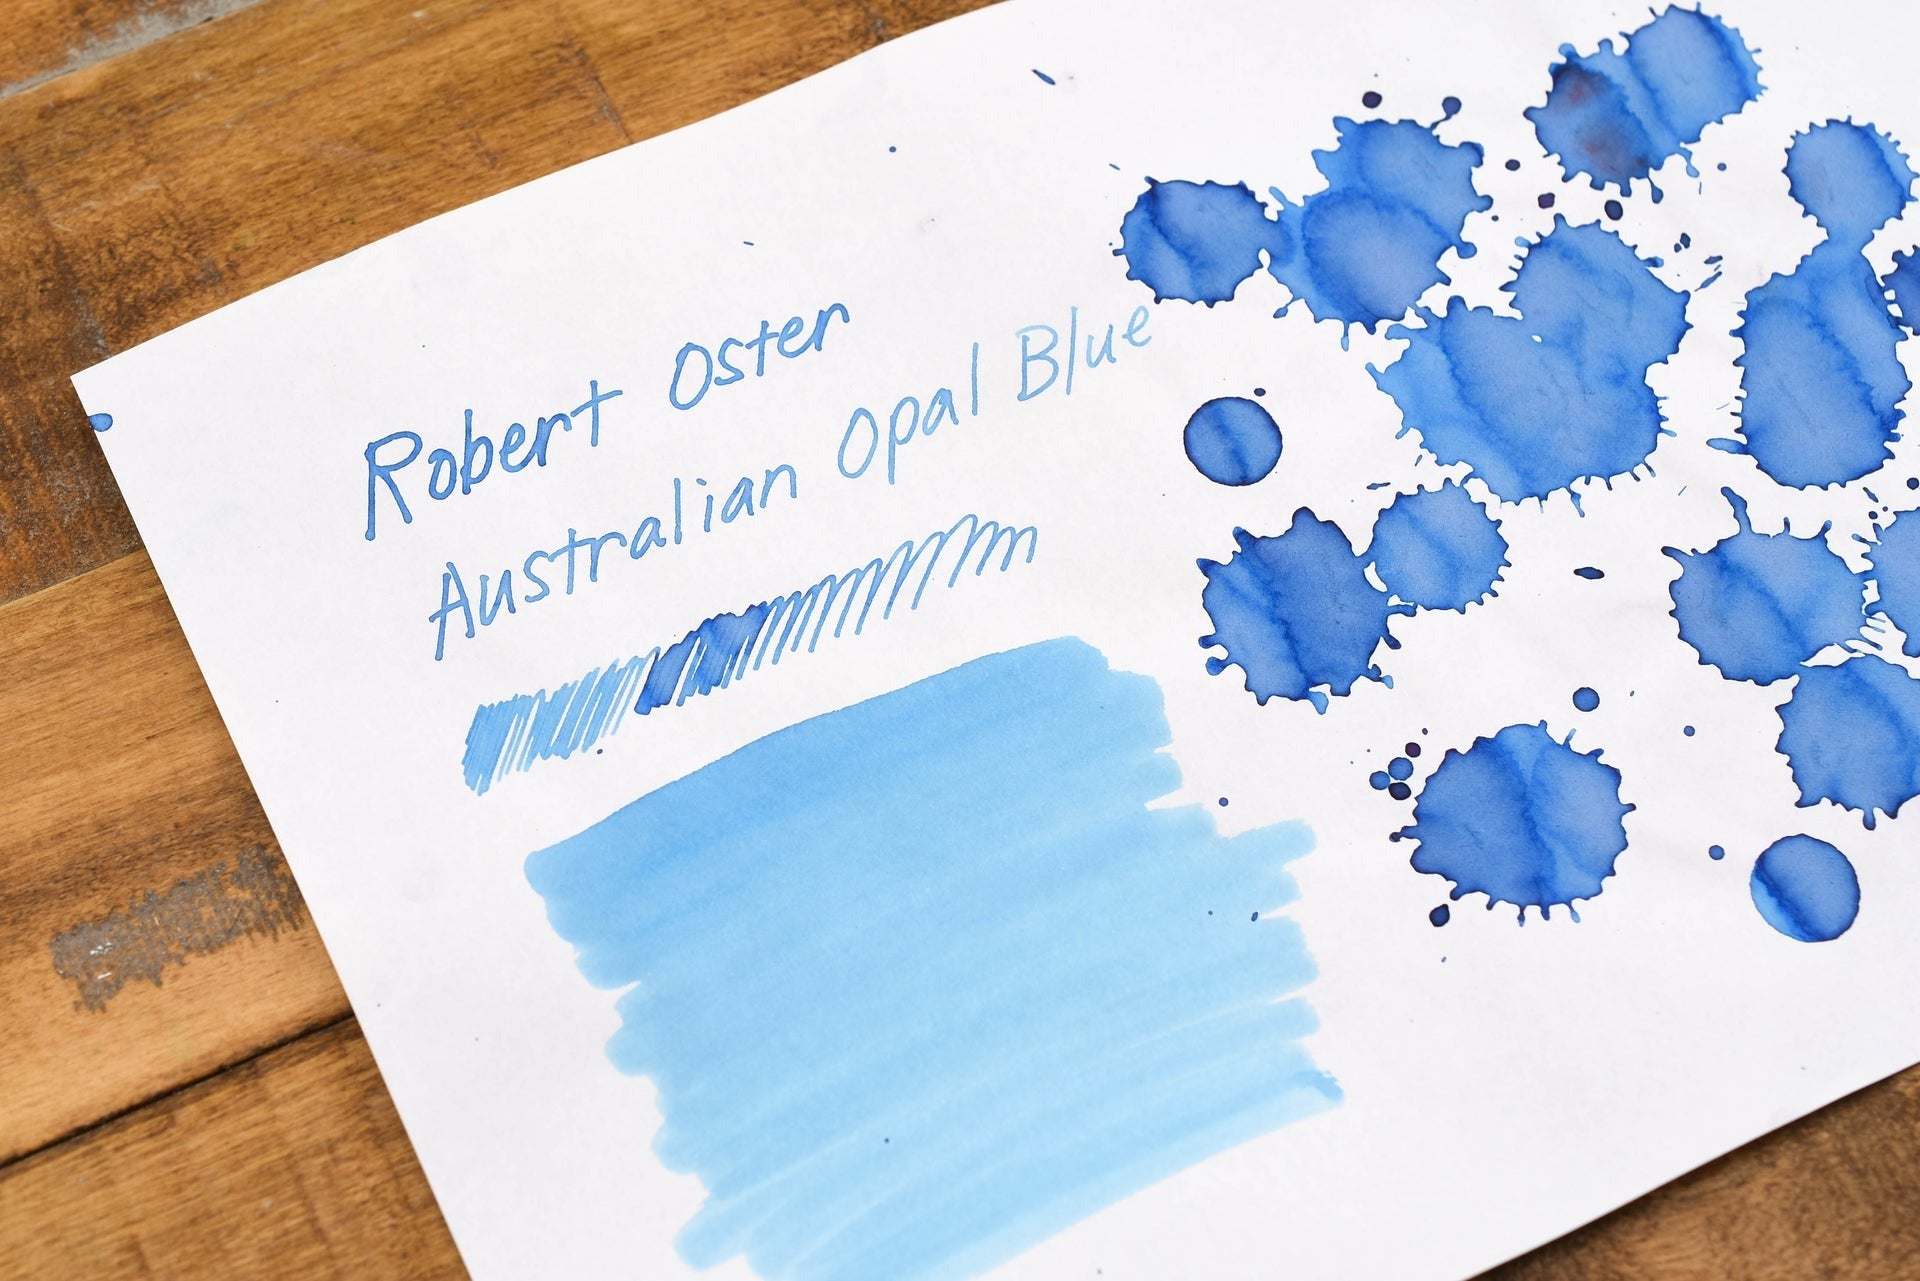 Robert Oster
Australian Opal Blue